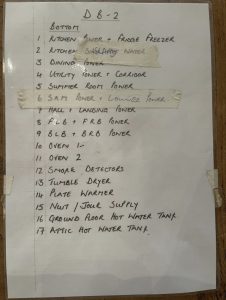 DB-2
BOTTOM
1 KITCHEN POWER + FRIDGE FREEZER
2 KITCHEN WATER
3 DINING POWER
4 UTILITY POWER + CORRIDOR
5 SUMMER ROOM POWER
6 POWER + POWER
7 HALL + LANDING POWER
8 FLB + FRB POWER
9 BLB + BRB POWER
10 OVEN 1-
11 OVEN 2
12 SMOKE DETECTORS
13 TUMBLE DRYER
14 PLATE WARMER
15 SUPPLY
16 GROUND FLOOR HOT WATER TANK
17 ATTIC HOT WATER TANK